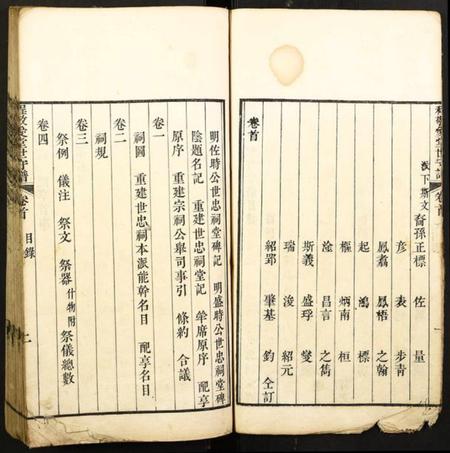 派下斯文裔孫正標 佐 量
彦 表 步青
鳳翥 鳳梧 之翰
起 鴻 標
權 炳南 桓
淦 昌言 之雋
斯義 盛琈 燮
瑞 浚 紹元
紹郢 肇基 鈞 仝訂
卷首
明佐時公世忠祠堂碑記 明盛時公世忠祠堂碑
陰題名記 重建世忠祠堂記 牟席原序 配享
原序 重建宗祠公舉司事引 條約 合議
卷一
祠圖 重建世忠祠本派能幹名目 配享名目
卷二
祠規
卷三
祭例 儀注 祭文 祭器什物附 祭儀總數
卷四
卷首 目錄